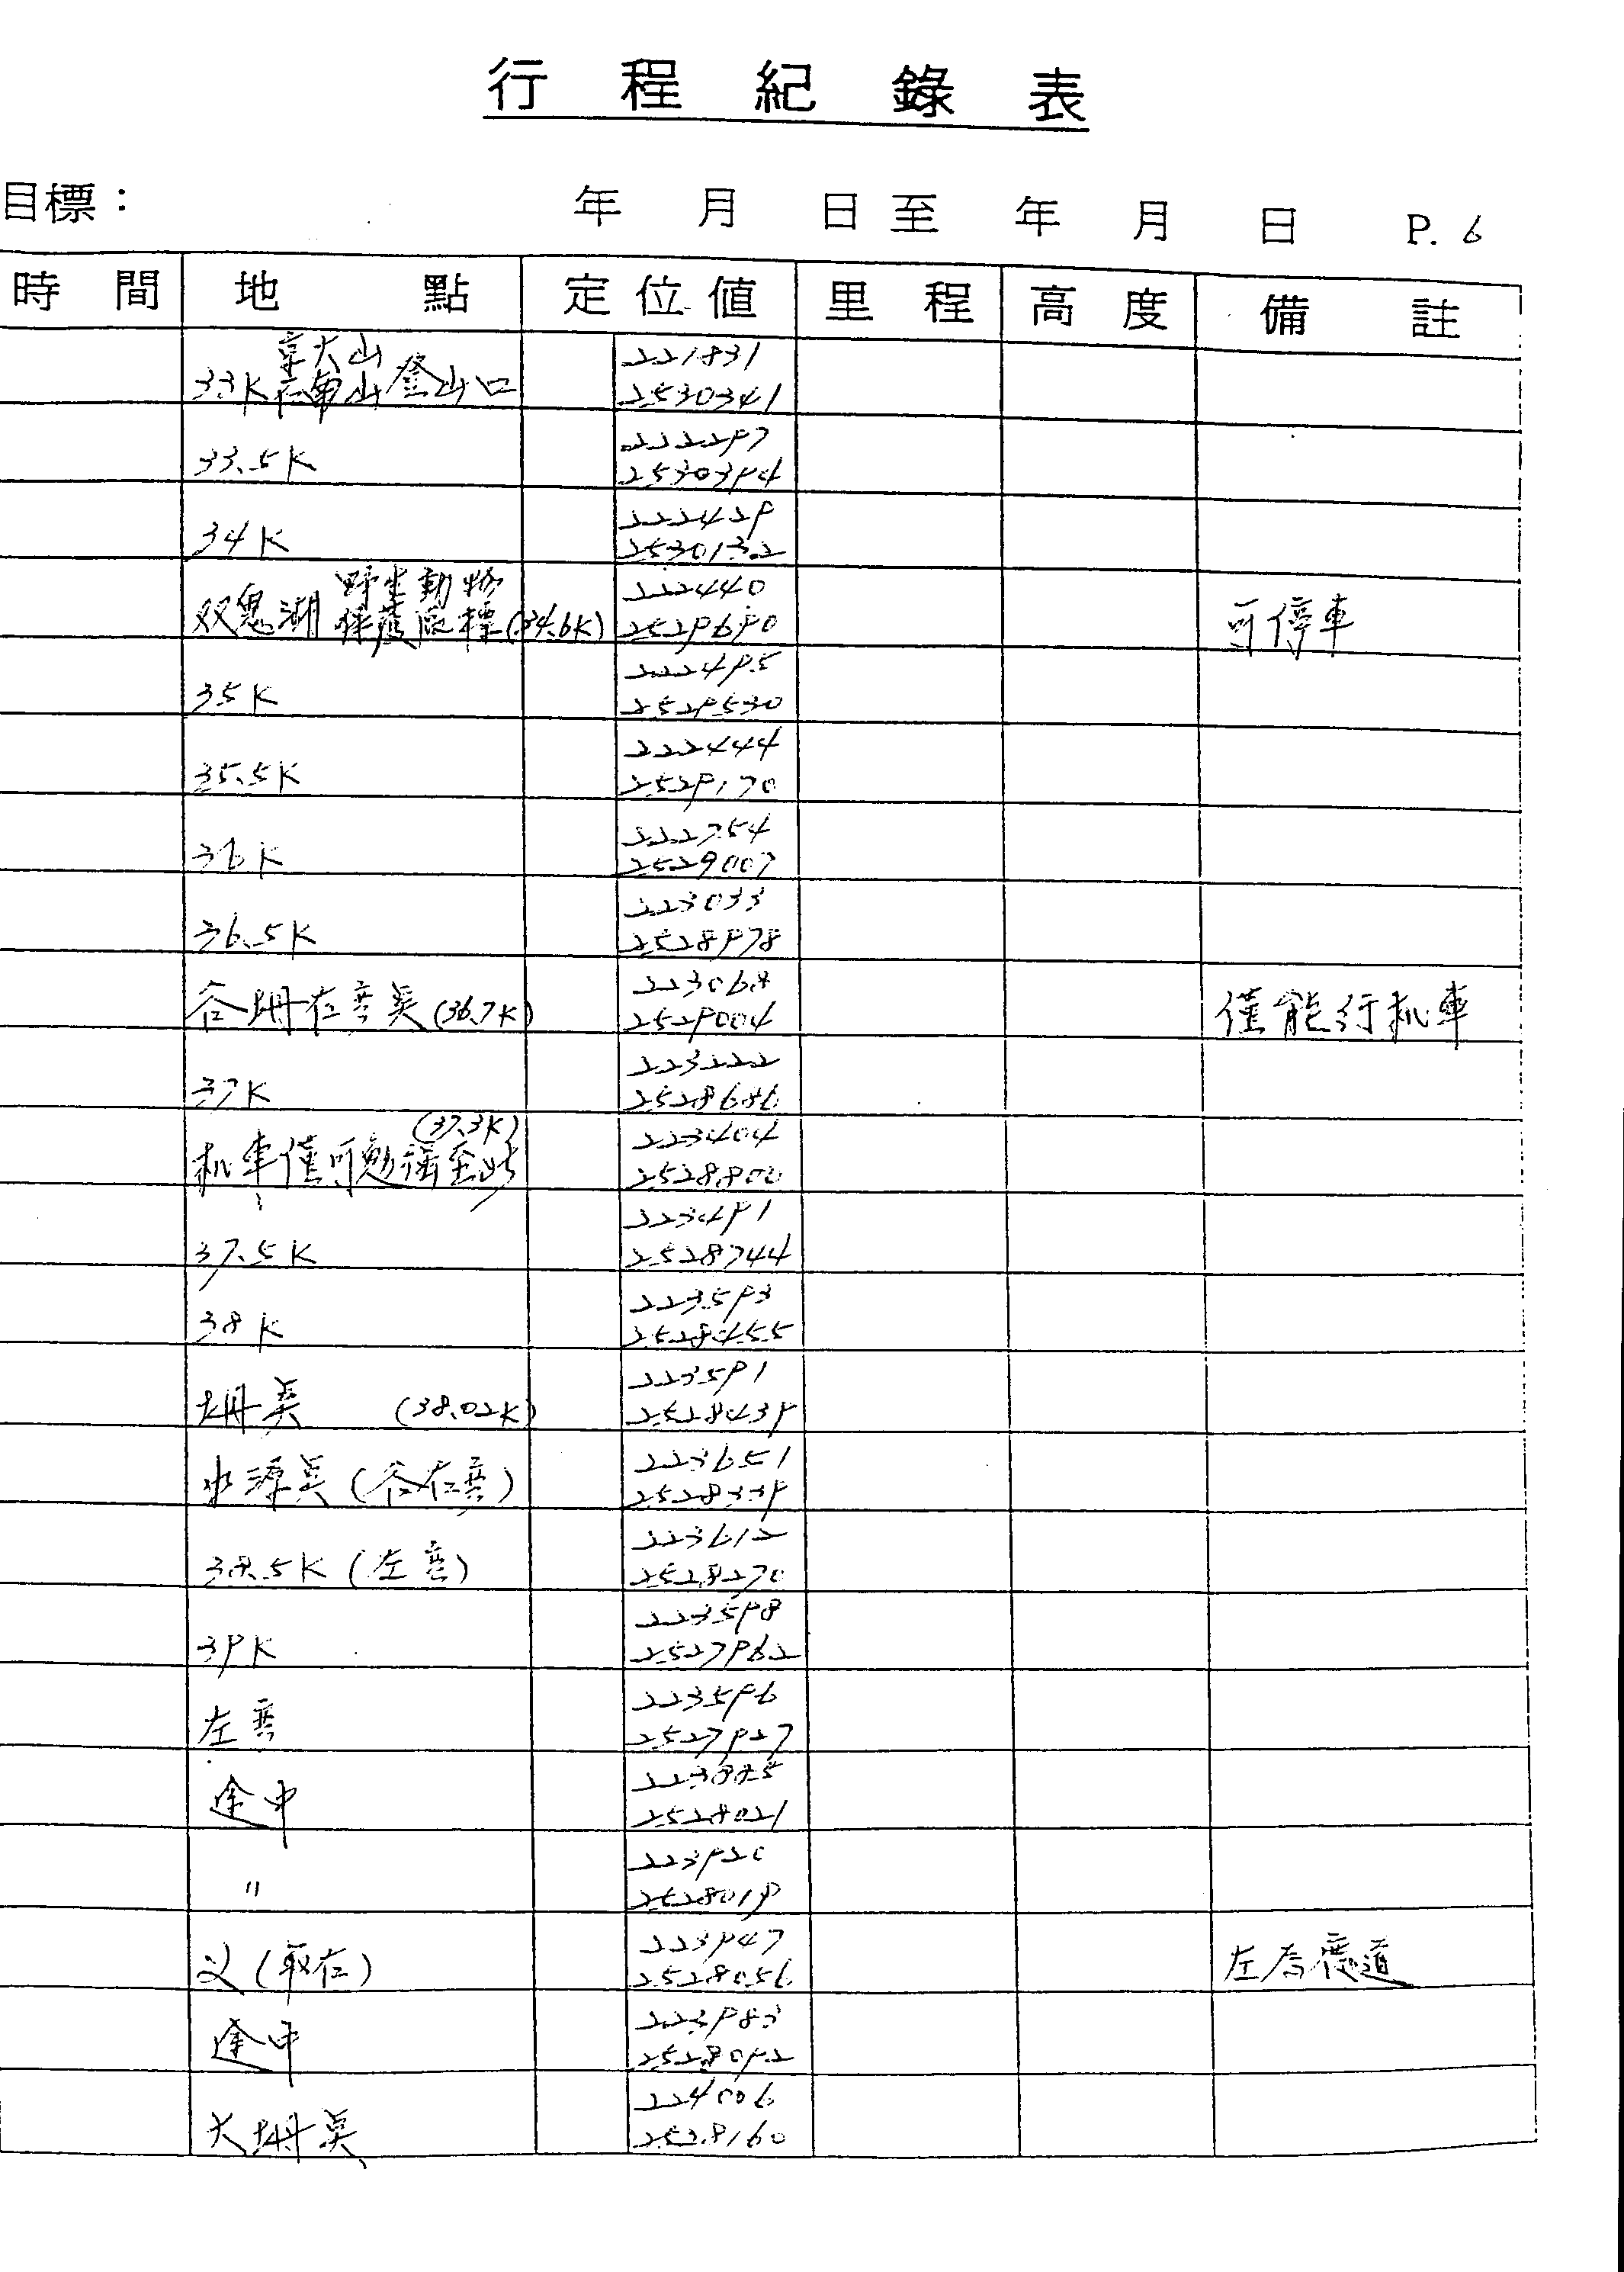 行程紀錄表
目標： 年 月 日至 年 月 日 P. 6
時間 地點 定位值 里程 高度 備註
京大山
33K 石南山 登山口 221831
2530341
33.5K 222297
2530394
34K 222429
2530132
双鬼湖 野生動物 222440
保護區標 (34.6K) 2529690 可停車
35K 222495
2529530
35.5K 222444
2529170
36K 222754
2529007
36.5K 223033
2528978
223068
(36.7K) 2529004 僅能行机車
37K 223222
2528686
(37.3K) 223404
机車僅可勉強至此 2528800
37.5K 223491
2528744
38K 223593
2528455
223591
(38.02K) 2528439
水源 223651
2528339
38.5K 223612
2528270
39K 223598
2527962
左 223596
2527927
途中 223885
2528021
〃 223920
2528019
义(取右) 223947
2528056 左為廢道
途中 223983
2528092
大 224006
2528160